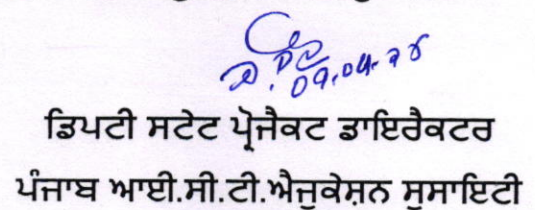 09.04.26
ਡਿਪਟੀ ਸਟੇਟ ਪ੍ਰੋਜੈਕਟ ਡਾਇਰੈਕਟਰ
ਪੰਜਾਬ ਆਈ.ਸੀ.ਟੀ.ਐਜੂਕੇਸ਼ਨ ਸੁਸਾਇਟੀ